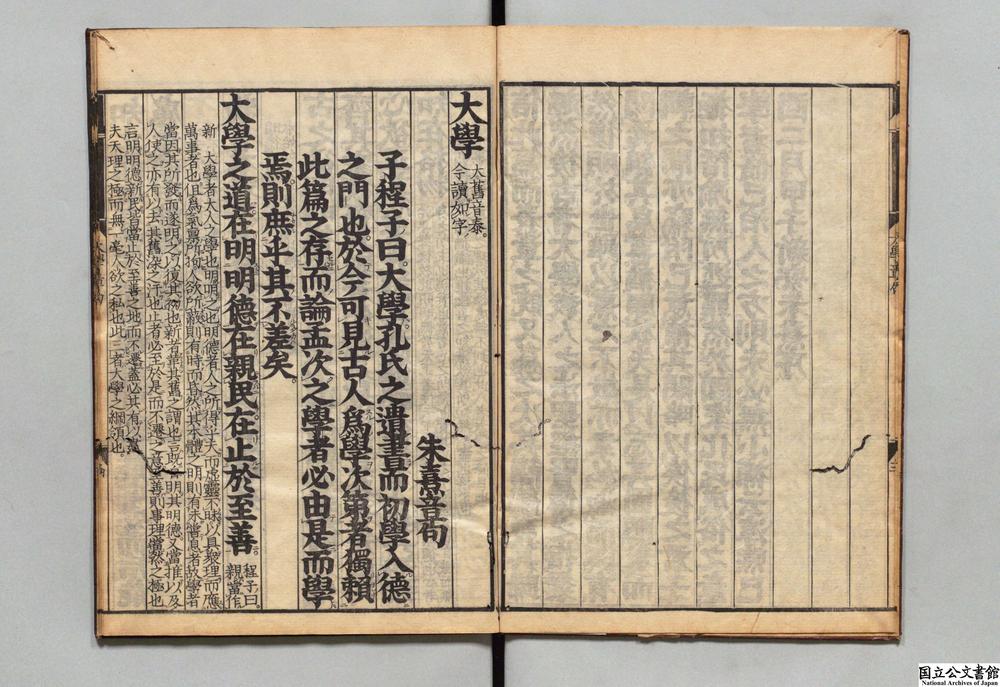 大學 大舊音泰。
今讀如字
朱熹章句
子程子曰。大學孔氏之遺書。而初學入德
之門也於今可見古人爲學次第者獨賴
此篇之存而論孟次之學者必由是而學
焉則庶乎其不差矣。
大學之道在明明德在親民。在止於至善。 程子曰。
親當作
新 大學者大人之學也明明之也明德者人之所得乎天而虛靈不昧以具衆理而應
萬事者也但爲氣稟所拘人欲所蔽則有時而昏然其本體之明則有未嘗息者故學者
當因其所發而遂明之以復其初也新者革其舊之謂也言既自明其明德又當推以及
人使之亦有以去其舊染之汙也止者必至於是而不遷之意至善則事理當然之極也
言明明德新民皆當止於至善之地而不遷蓋必其有以盡
夫天理之極而無一毫人欲之私也此三者大學之綱領也。
国立公文書館
National Archives of Japan